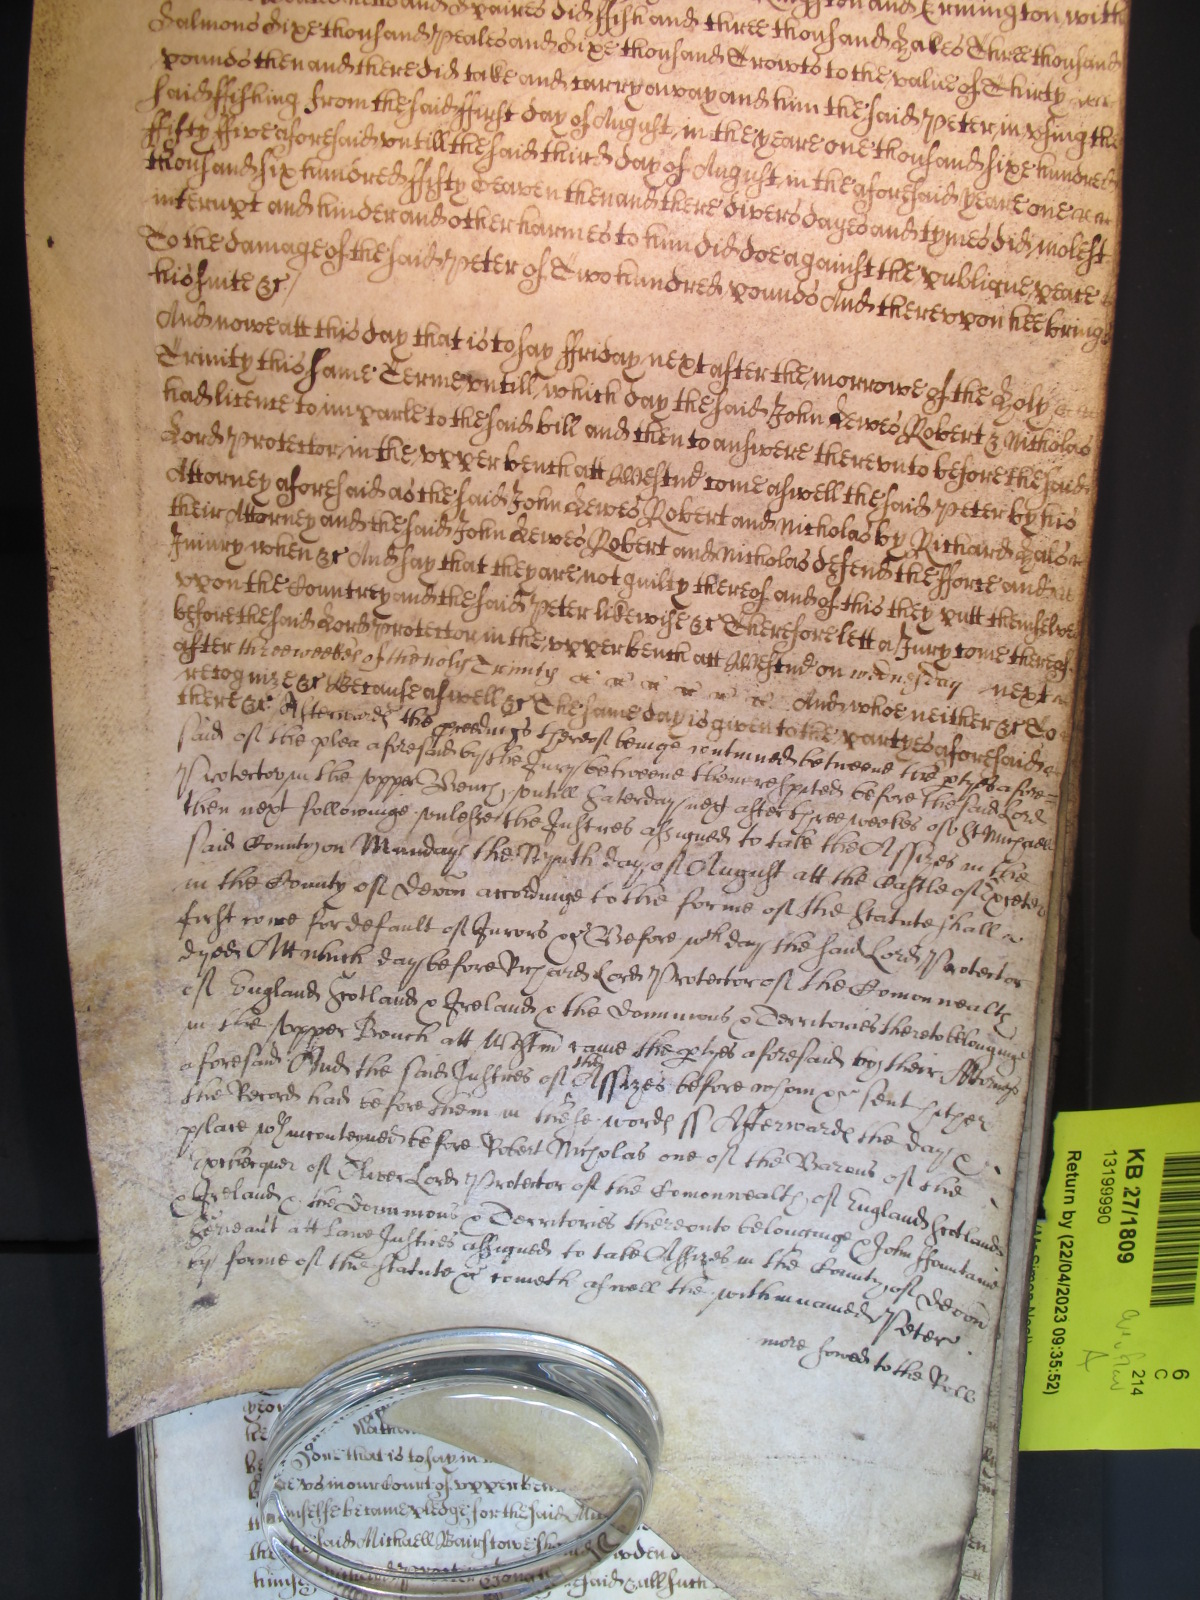 and Ermington with
Salmons Sixe thousand Peales and Sixe thousand Trowts to the value of Thirty
pounds then and there did take and carry away and him the said Peter in vsing the
said ffishing from the said ffirst day of August in the yeare one thousand sixe hundred
ffifty ffive aforesaid vntill the said third day of August in the aforesaid yeare one
thousand six hundred ffifty Seaven then and there divers dayes and tymes did molest
interrupt and hinder and other harmes to him did doe against the publique peace
To the damage of the said Peter of Two hundred pounds And therevpon hee brings
his suite &c
And nowe att this day that is to say ffriday next after the morrowe of the Holy
Trinity this same Terme vntill which day the said John Lewes Robert & Nicholas
had licence to imparle to the said bill and then to answere therevnto before the said
Lord Protector in the vpper bench att Westmr come aswell the said Peter by his
Attorney aforesaid as the said John Lewes Robert and Nicholas by Richard Hals
their Attorney and the said John Lewes Robert and Nicholas defend the fforce and
Iniury when &c And say that they are not guilty thereof and of this they putt themselves
vpon the Countrey and the said Peter likewise &c Therefore lett a Jury come thereof
before the said Lord Protector in the vpper bench att Westmr on wednesday next
after three weekes of the holy Trinity And whoe neither &c To
recognize &c Because aswell &c The same day is given to the partyes aforesaid
there &c Afterwards the pceedings thereof beinge continued betweene the ptyes afore=
said of the plea aforesaid by the Jury betweene them respited before the said Lord
Protector in the vpper Bench vntill Saterday next after three weekes of St Michaell
then next followinge vnlesse the Justices assigned to take the Assizes in the
said County on Munday the Nynth day of August att the Castle of Exeter
in the County of Devon accordinge to the forme of the Statute shall
first come for default of Jurors &c Before wch day the said Lord Protector
dyed Att which day before Richard Lord Protector of the Comonwealth
of England Scotland & Ireland & the Dominions & Territories thereto belonginge
in the vpper Bench att Westmr came the ptyes aforesaid by their Attorneys
aforesaid And the said Justices of the Assizes before whom &c sent hither
the Record had before them in these words ss Afterwards the day &
place wthin conteyned before Robert Nicholas one of the Barons of the
Exchequer of Oliver Lord Protector of the Comonwealth of England Scotland
& Ireland & the Dominions & Territories therevnto belonginge & John ffountaine
Serieant att Lawe Justices assigned to take Assizes in the County of Devon
by forme of the statute &c cometh aswell the within named Peter
more sowed to the Roll
KB 27/1809
13199990
Return by (22/04/2023 09:35:52)
6
C
214
that is to say in
in our Court of vpper ben
himselfe became pledge for the said
the said Michaell Bairstowe
said & all such